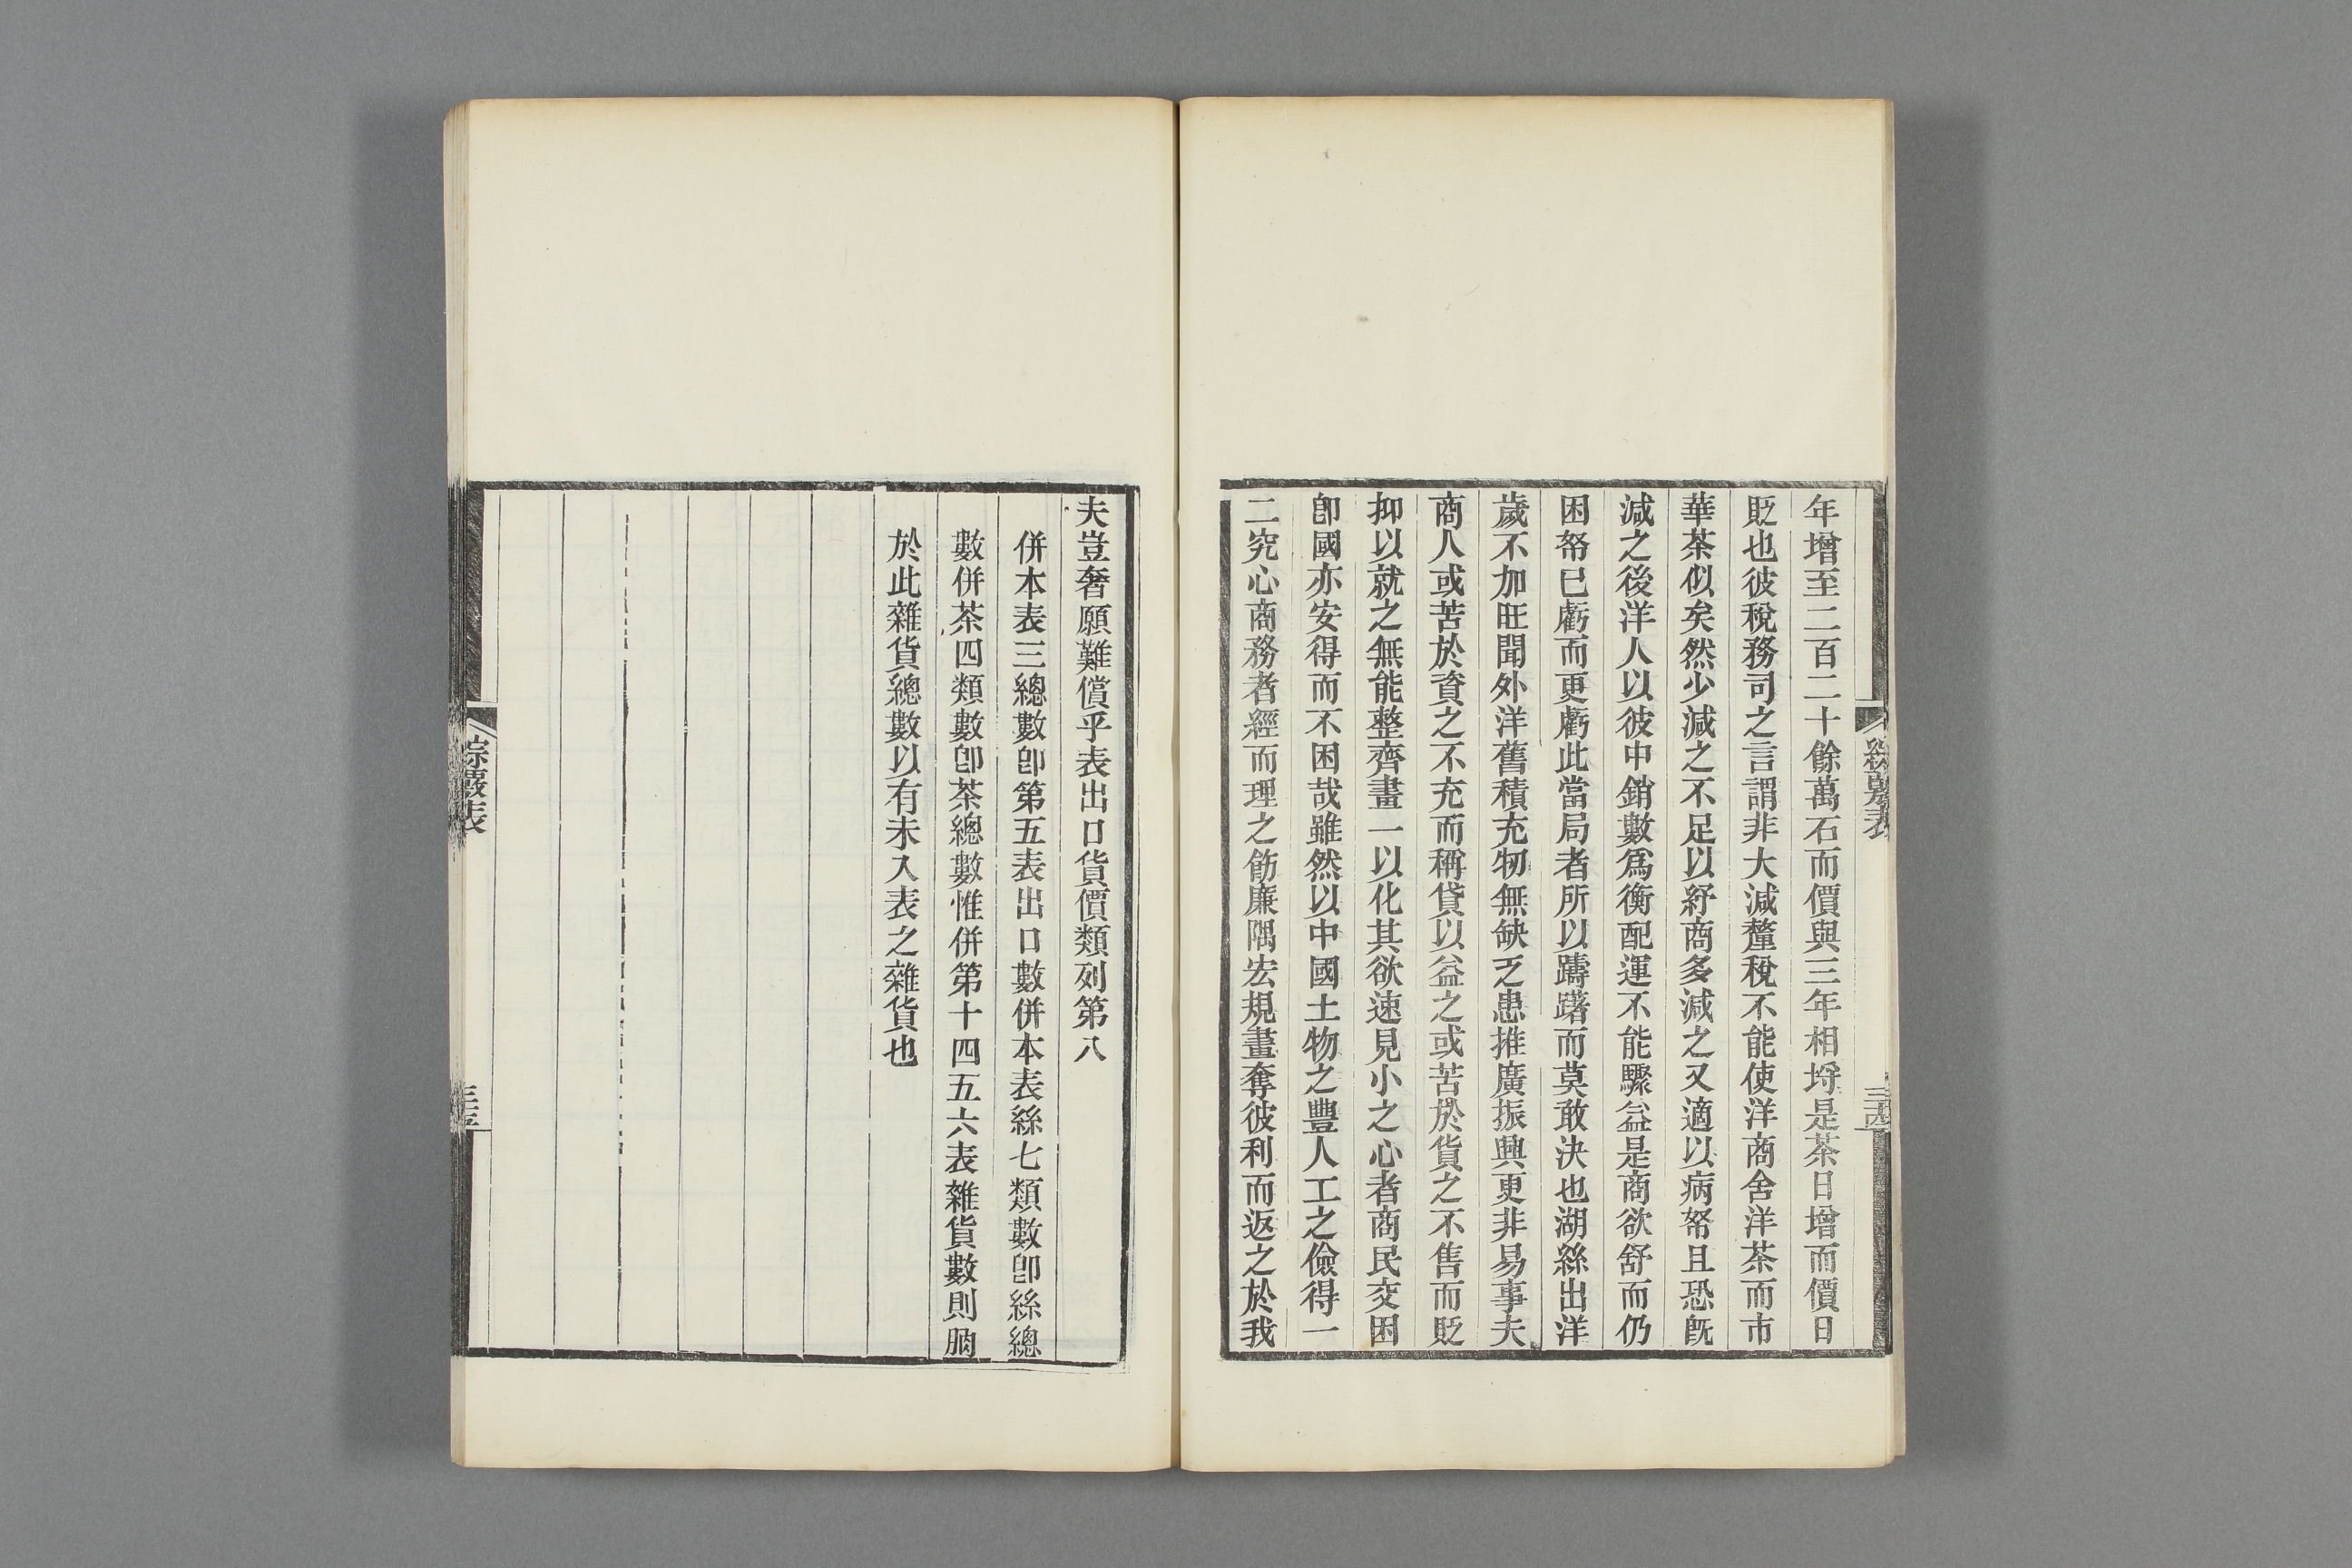 年增至二百二十餘萬石而價與三年相埒是茶日增而價日
貶也彼稅務司之言謂非大減釐稅不能使洋商舍洋茶而市
華茶似矣然少減之不足以紓商多減之又適以病帑且恐旣
減之後洋人以彼中銷數爲衡配運不能驟益是商欲舒而仍
困帑已虧而更虧此當局者所以躊躇而莫敢決也湖絲出洋
歲不加旺聞外洋舊積充牣無缺乏患推廣振興更非易事夫
商人或苦於資之不充而稱貸以益之或苦於貨之不售而貶
抑以就之無能整齊畫一以化其欲速見小之心者商民交困
卽國亦安得而不困哉雖然以中國土物之豐人工之儉得一
二究心商務者經而理之飭廉隅宏規畫奪彼利而返之於我
夫豈奢願難償乎表出口貨價類列第八
併本表三總數卽第五表出口數併本表絲七類數卽絲總
數併茶四類數卽茶總數惟併第十四五六表雜貨數則朒
於此雜貨總數以有未入表之雜貨也
綜覈表
三十五